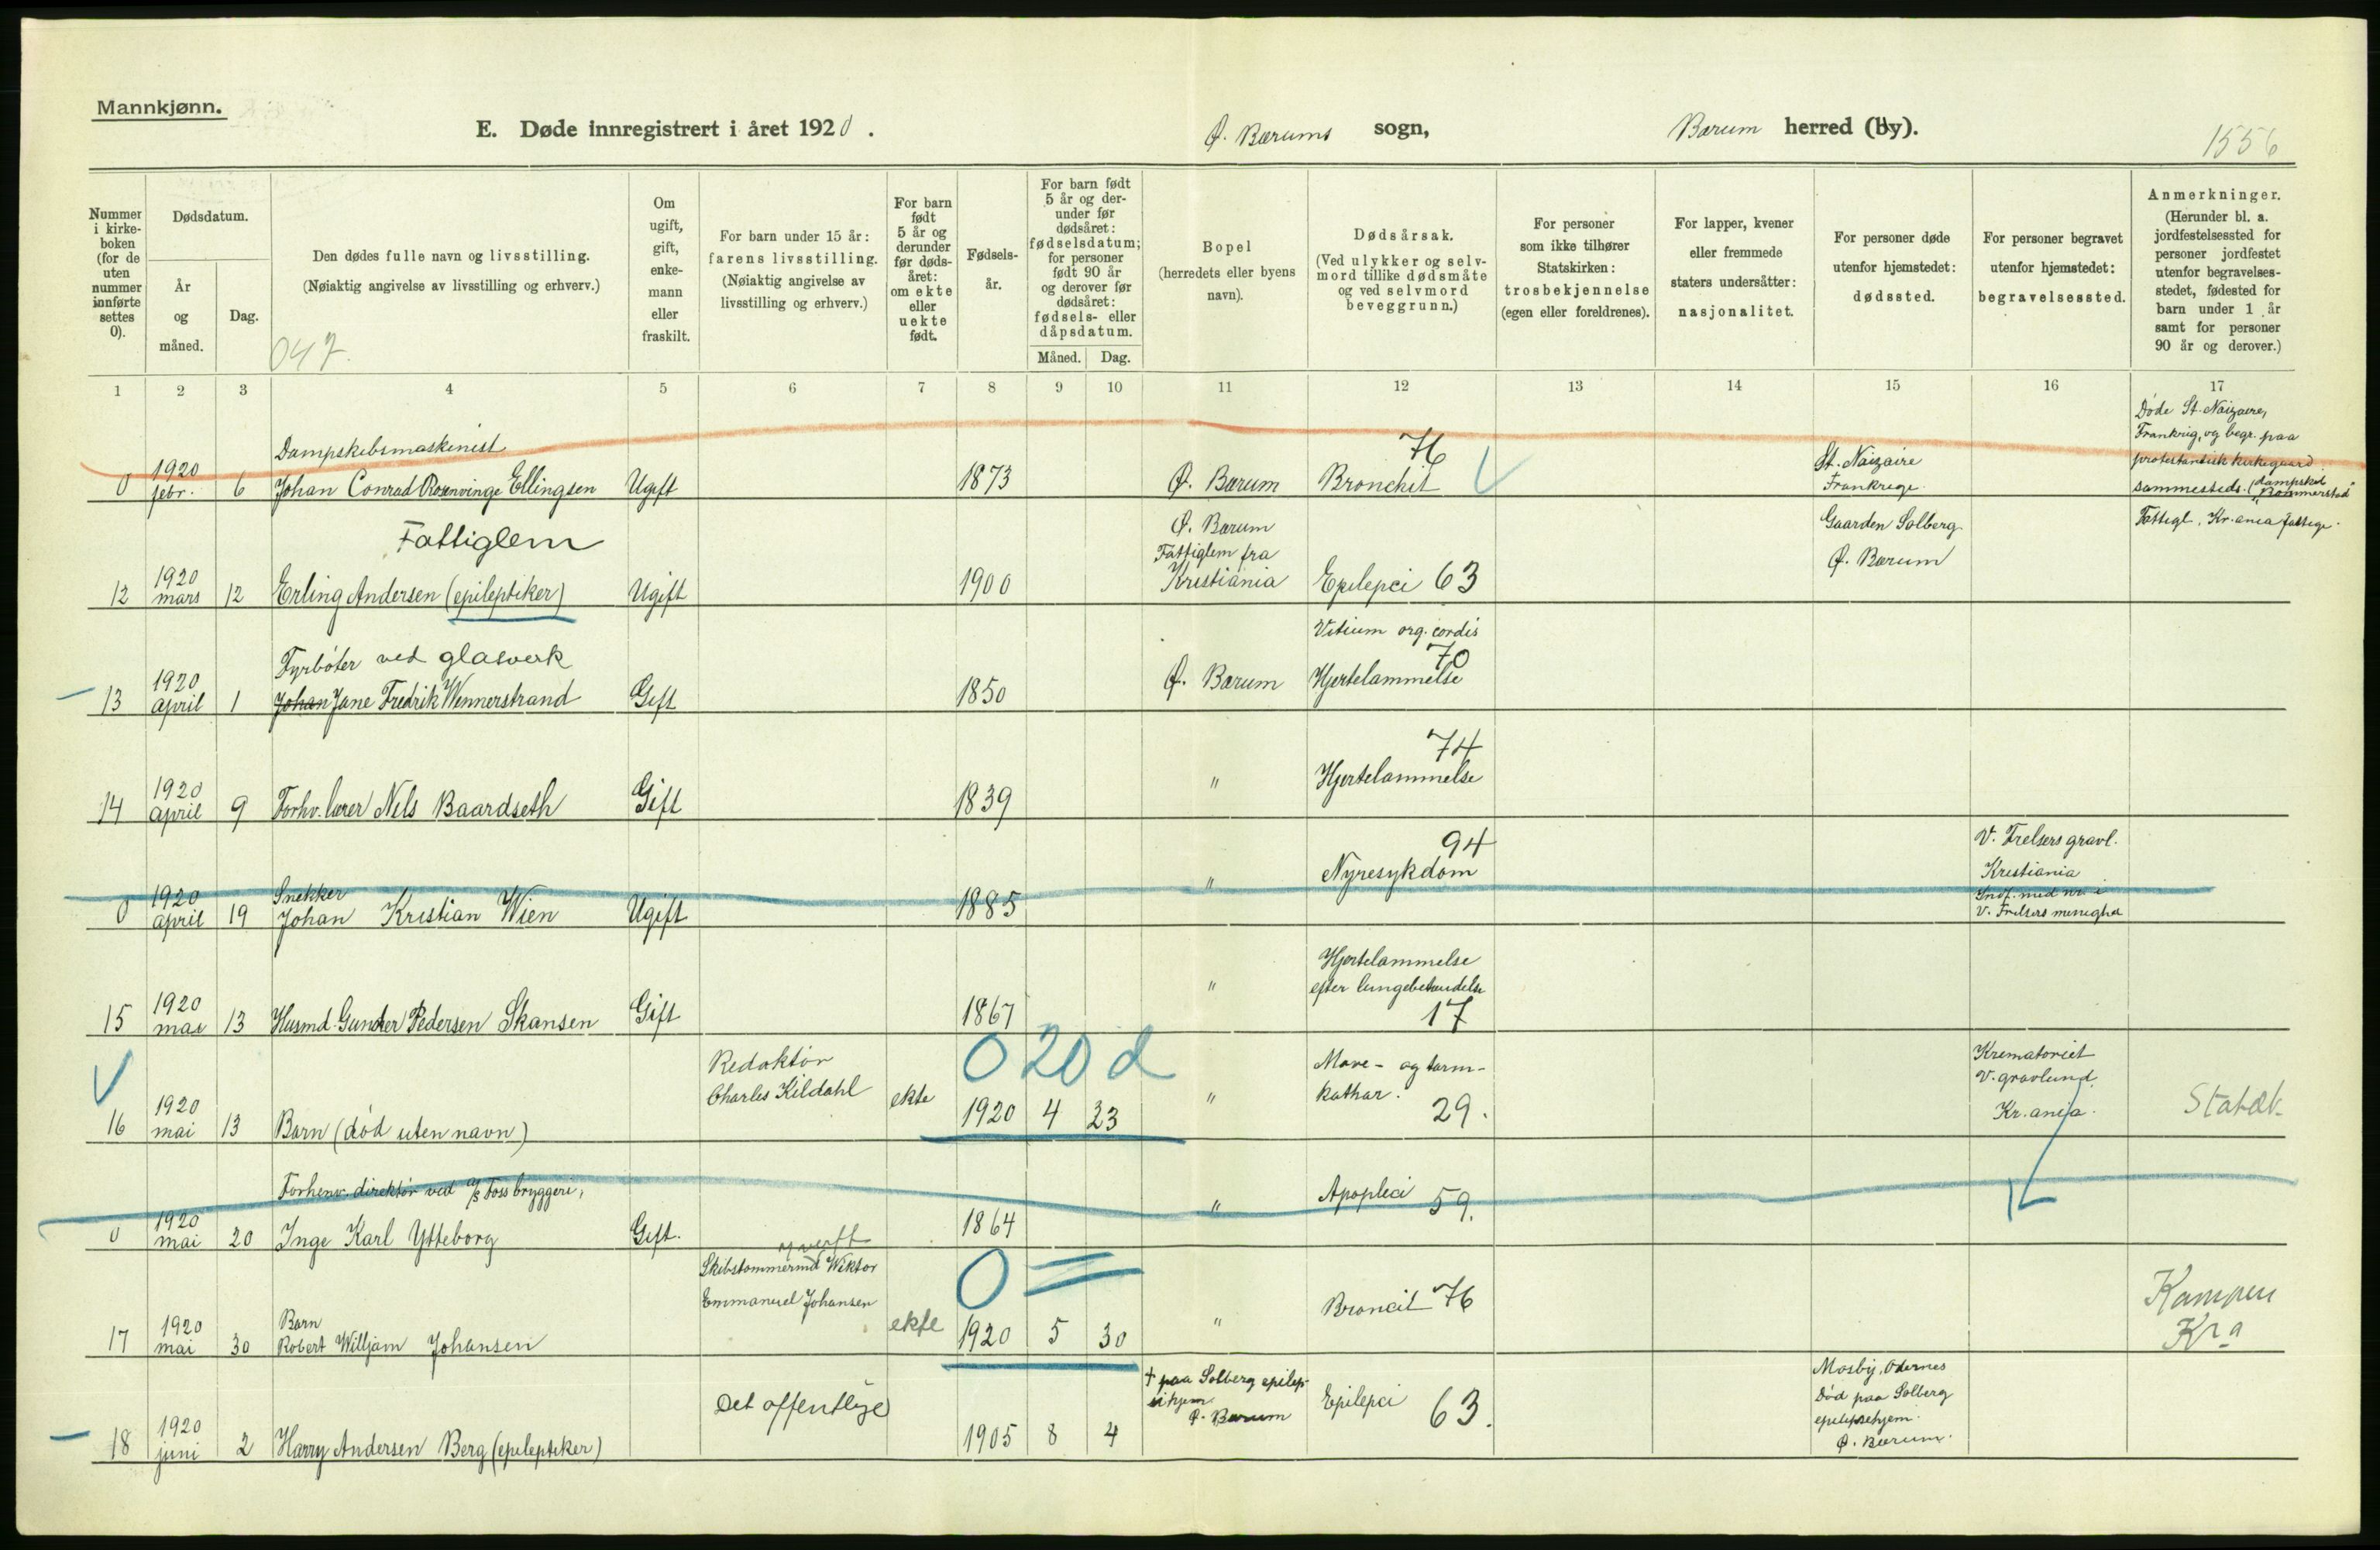 Mannkjønn.
E. Døde innregistrert i året 1920. Ø. Bærums sogn, Bærum herred (by).
1556
Nummer i kirkeboken (for de uten nummer innførte settes 0).
Dødsdatum.
År og måned.
Dag.
Den dødes fulle navn og livsstilling.
(Nøiaktig angivelse av livsstilling og erhverv.)
047.
Om ugift, gift, enkemann eller fraskilt.
For barn under 15 år: farens livsstilling.
(Nøiaktig angivelse av livsstilling og erhverv.)
For barn født 5 år og derunder før dødsåret: om ekte eller uekte født.
Fødselsår.
For barn født 5 år og derunder før dødsåret: fødselsdatum; for personer født 90 år og derover før dødsåret: fødsels- eller dåpsdatum.
Måned. Dag.
Bopel
(herredets eller byens navn).
Dødsårsak.
(Ved ulykker og selvmord tillike dødsmåte og ved selvmord beveggrunn.)
For personer som ikke tilhører Statskirken: trosbekjennelse (egen eller foreldrenes).
For lapper, kvener eller fremmede staters undersåtter: nasjonalitet.
For personer døde utenfor hjemstedet: dødssted.
For personer begravet utenfor hjemstedet: begravelsessted.
Anmerkninger.
(Herunder bl. a. jordfestelsessted for personer jordfestet utenfor begravelsesstedet, fødested for barn under 1 år samt for personer 90 år og derover.)
1 2 3 4 5 6 7 8 9 10 11 12 13 14 15 16 17
0 1920 febr. 6
Dampskibsmaskinist
Johan Conrad Rosenvinge Ellingsen Ugift 1873 Ø. Bærum
76
Bronchit
St. Naizaire
Frankrige.
Døde St. Naizaire,
Frankrig, og begr. paa
protestantisk kirkegaard
sammesteds. (dampskib
"Rommerstad"
12 1920 mars 12
Fattiglem
Erling Andersen (epileptiker) Ugift 1900
Ø. Bærum
Fattiglem fra
Kristiania
Epilepci 63
Gaarden Solberg
Ø. Bærum
Fattigl. Kr.ania fattige.
13 1920 april 1
Fyrbøter ved glasverk
Johan Jane Fredrik Wennerstrand Gift 1850 Ø. Bærum
Vitium org. cordis
70
Hjertelammelse
14 1920 april 9 Forhv. lærer Nils Baardseth Gift 1839 "
74
Hjertelammelse
0 1920 april 19
Snekker
Johan Kristian Wien Ugift 1885 "
94
Nyresykdom
V. Frelsers gravl.
Kristiania
Indf. med nr. i
V. Frelsers menighet
15 1920 mai 13 Husmd. Gunder Pedersen Skansen Gift 1867 "
Hjertelammelse
efter lungebetændelse
17
16 1920 mai 13 Barn (død uten navn)
Redaktør
Charles Kildahl
ekte
0 20 d
1920 4 23 "
Mave- og tarm-
kathar.
29.
Krematoriet
V. gravlund
Kr.ania.
Stabæk
0 1920 mai 20
Forhenv. direktør ved A/S Foss bryggeri,
Inge Karl Ytteborg Gift. 1864 "
Apoplexi 59.
17 1920 mai 30
Barn
Robert Willjam Johansen
v verft
Skibstømmermd Wiktor
Emmanuel Johansen
ekte
0 =
1920 5 30 "
Broncit 76
Kampen
Kra
18 1920 juni 2 Harry Andersen Berg (epileptiker)
Det offentlige
1905 8 4
+ paa Solberg epilep-
sihjem
Ø. Bærum
Epilepci 63.
Mosby, Odernes
Død paa Solberg
epilepsehjem.
Ø. Bærum.